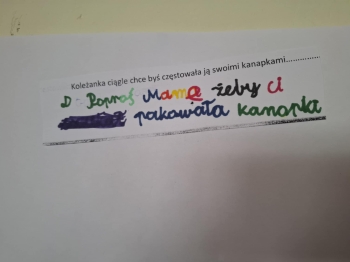 Koleżanka ciągle chce byś częstowała ją swoimi kanapkami...............
D Poproś Mamę żeby ci
pakowała kanapka